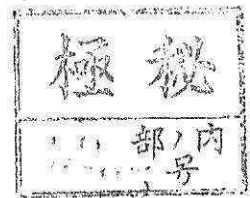 極秘
部ノ内
号